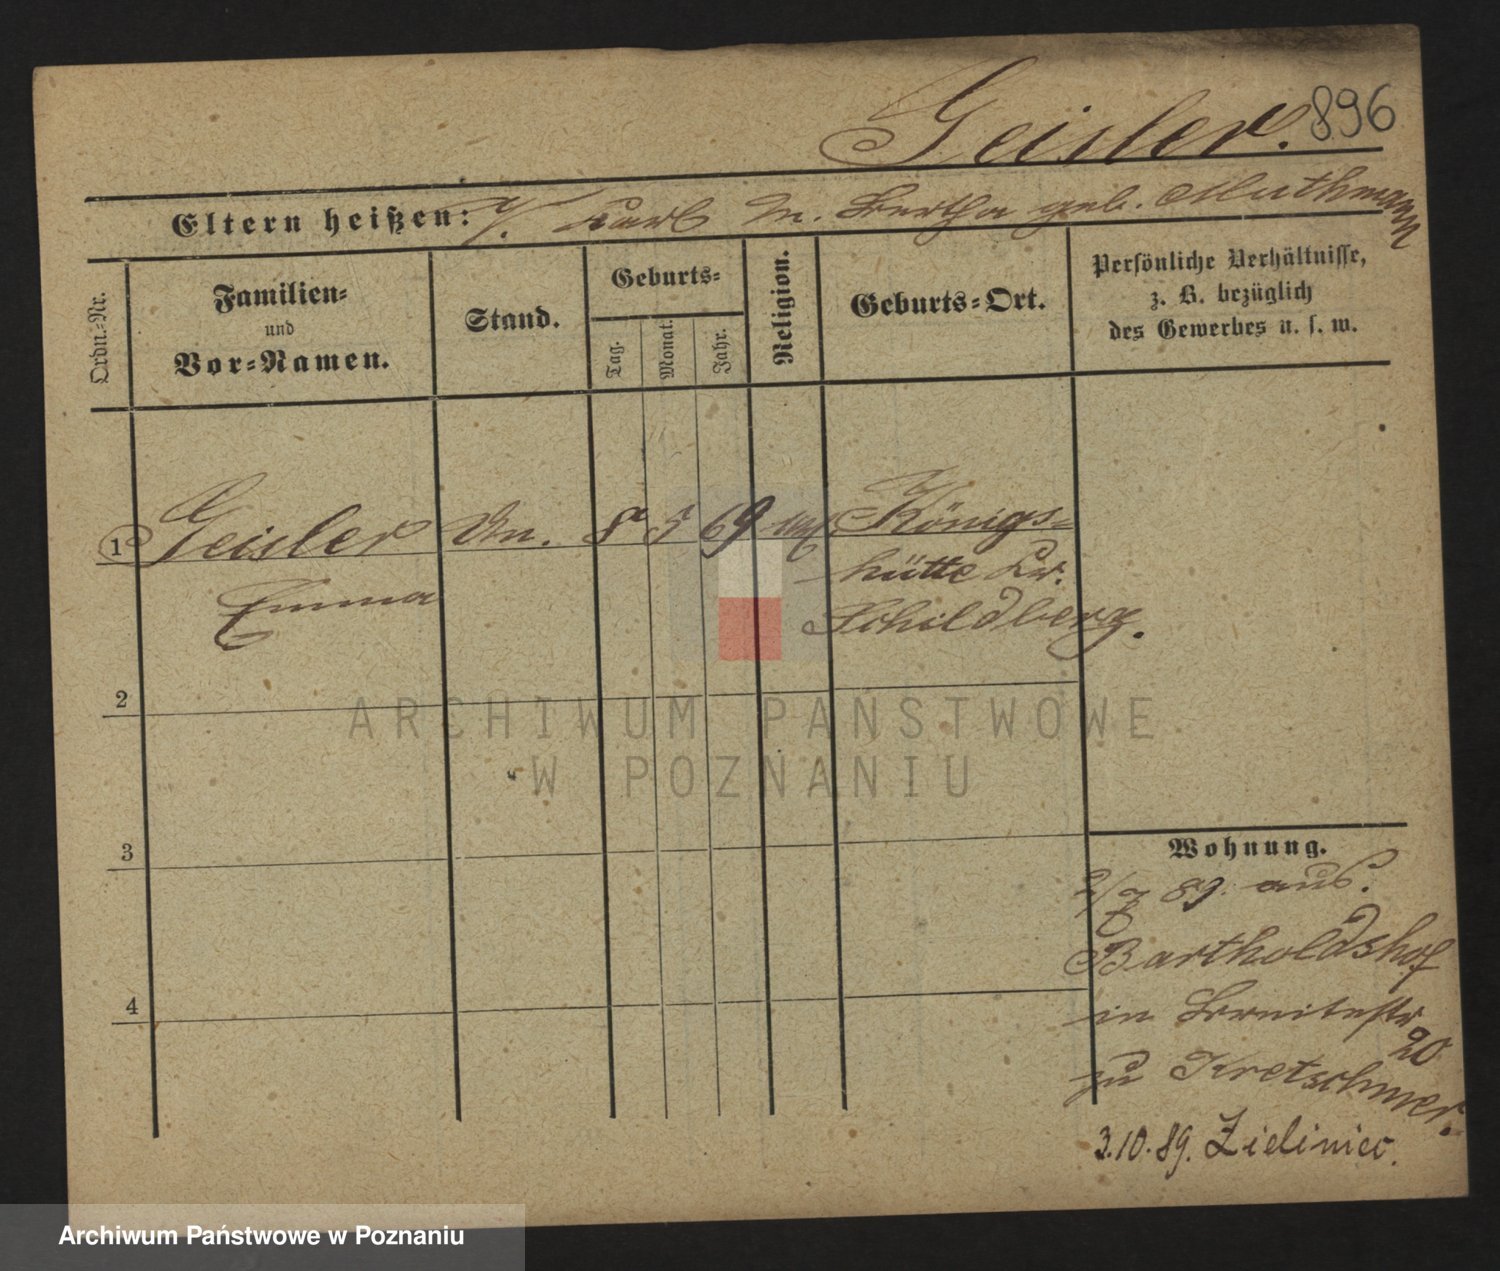 Geisler. 896
Eltern heißen: V. Karl M. Bertha geb. Muthmann
Ordn.-Nr.
Familien-
und
Vor-Namen.
Stand.
Geburts-
Tag.
Monat.
Jahr.
Religion.
Geburts-Ort.
Persönliche Verhältnisse,
z. B. bezüglich
des Gewerbes u. s. w.
1 Geisler 8 5 69 Königs-
Emma hütte Kr.
Schildberg.
2
ARCHIWUM PAŃSTWOWE
W POZNANIU
3
Wohnung.
2/7 89. aus.
Bartholdshof
in Breitestr
20
zu Kretschmer.
4
3.10.89. Zieliniec.
Archiwum Państwowe w Poznaniu